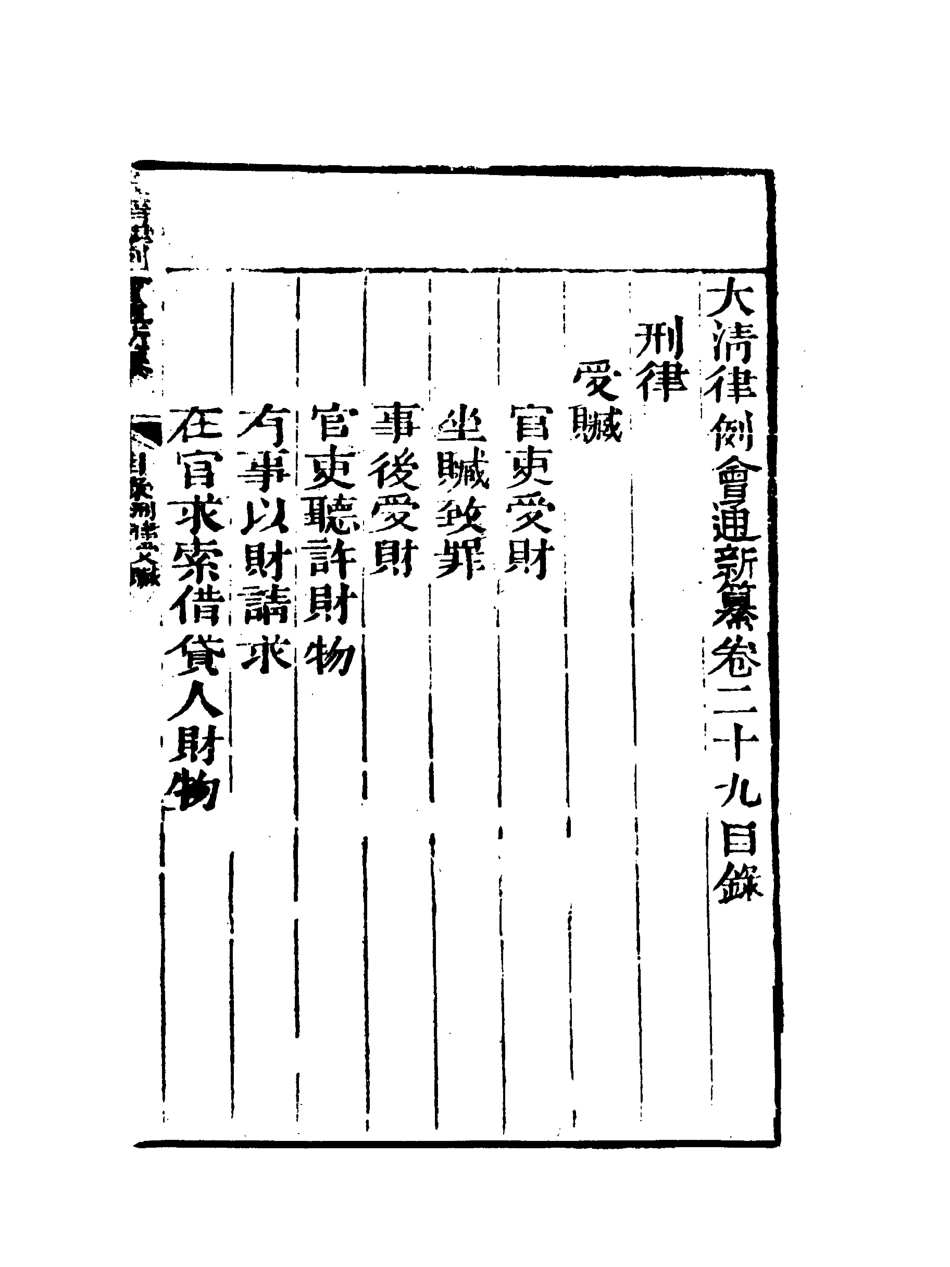 大清律例會通新纂卷二十九目錄
刑律
受贓
官吏受財
坐贓致罪
事後受財
官吏聽許財物
有事以財請求
在官求索借貸人財物